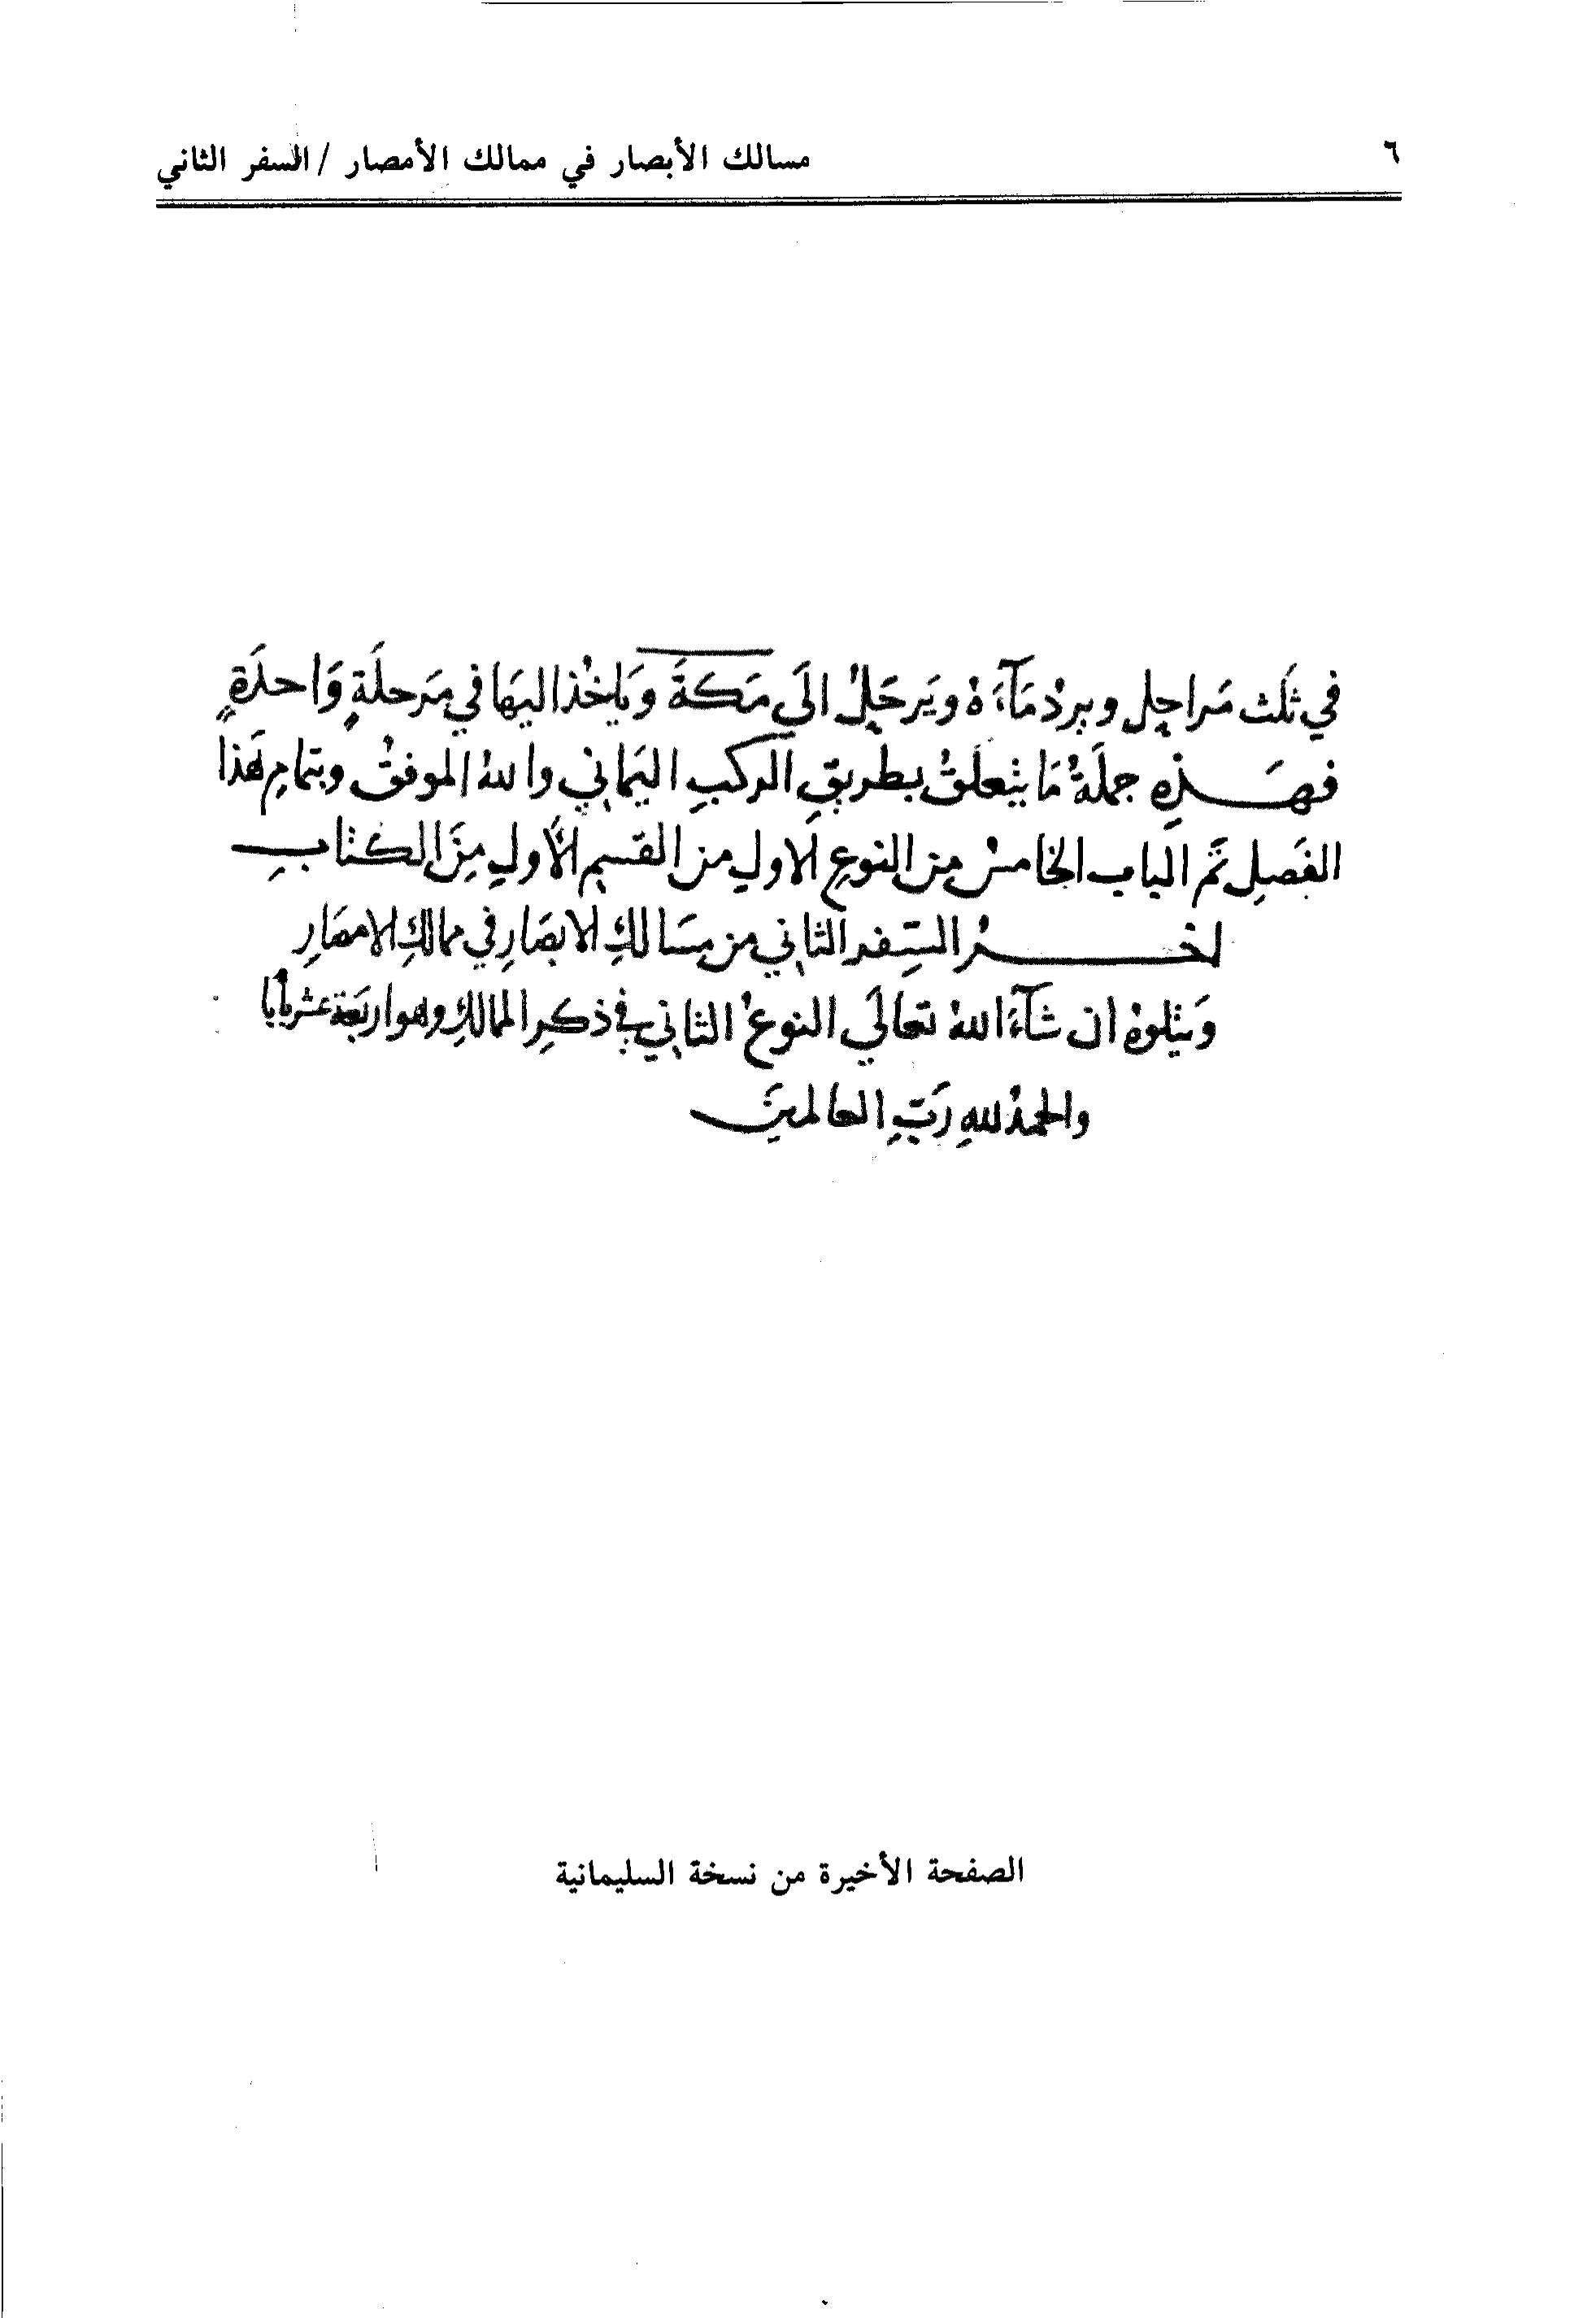 ٦
مسالك الأبصار في ممالك الأمصار / السفر الثاني
في ثلث مَراحِل ويردُ مَآءَهُ ويَرحَلُ الَى مَكةَ ويَاخُذ اليهَا في مَرحلَةٍ وَاحدَةٍ
فهَذِهِ جملَةُ مَا يتعلقُ بطريقِ الركبِ اليماني والله الموفقُ وبتمامِ هَذا
الفَصلِ تمَّ الباب الخامسُ من النوعِ الاول من القسم الأولِ مِنَ الكتابِ
اخرُ السِّفر الثاني من مسَالكِ الابصَارِ في ممالكِ الامصَارِ
وَيتلوهُ ان شآءَ اللهُ تعَالَي النوعُ الثاني في ذكرِ الممالكِ وهو اربَعة عشر بابًا
والحمدُ للهِ رَبِّ العالمينَ
الصفحة الأخيرة من نسخة السليمانية